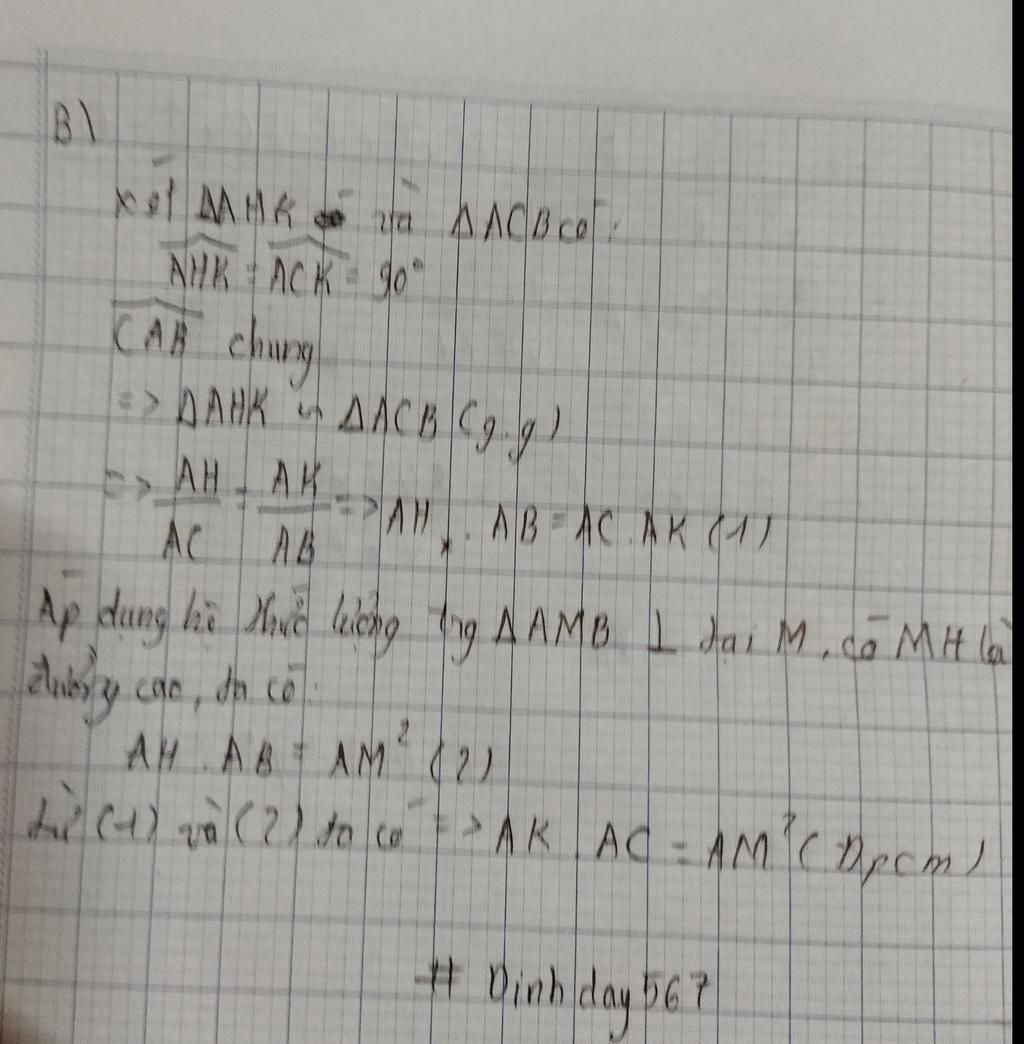 B)
Xét ΔAHK và ΔACB có:
AHK = ACK = 90°
CAB chung
=> ΔAHK ∽ ΔACB (g.g)
=> AH/AC = AK/AB => AH . AB = AC . AK (1)
Áp dụng hệ thức lượng trg ΔAMB ⊥ tại M, có MH là
đường cao, ta có:
AH . AB = AM² (2)
từ (1) và (2) ta có => AK . AC = AM² (Đpcm)
# Dinhday567